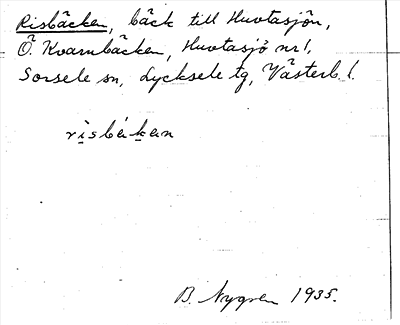 Risbäcken, bäck till Huvtasjön,
Ö. Kvarnbäcken, Huvtasjö nr 1,
Sorsele sn, Lycksele tg, Västerb. l.
risbäkan
B. Nygren 1935.